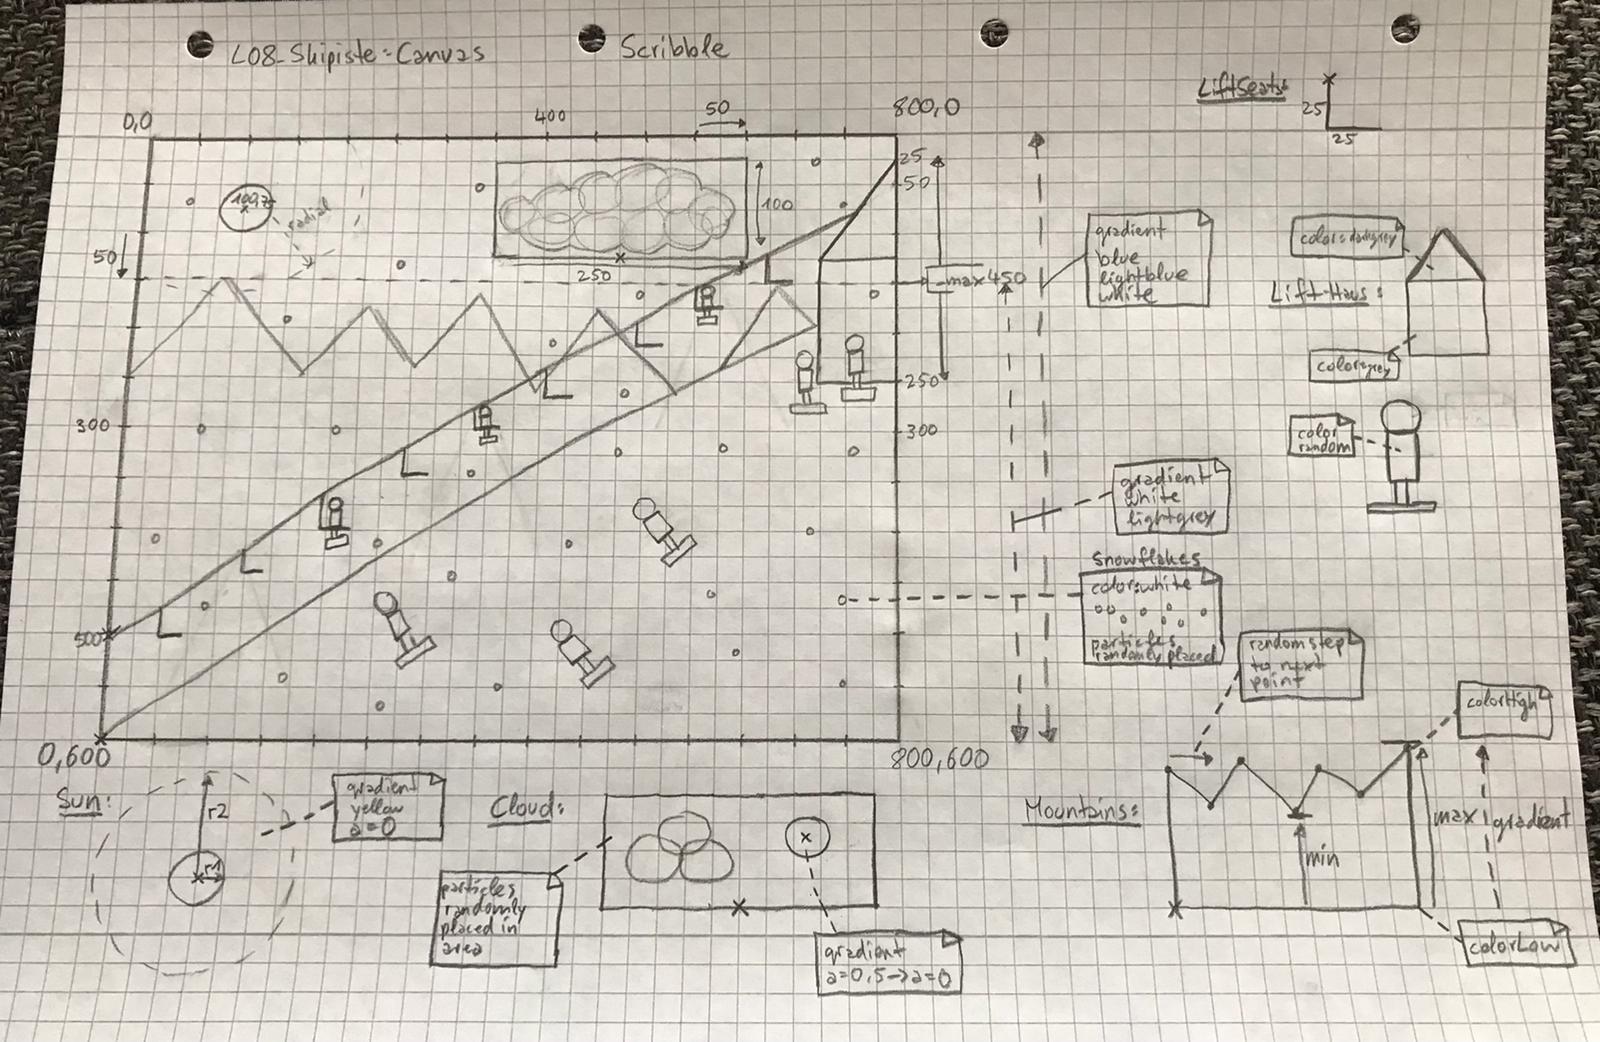 L08_Skipiste-Canvas
Scribble
LiftSeats:
25
25
0,0
400
50
800,0
25
50
100
radial
50
250
max 450
gradient
blue
lightblue
white
color:darkgrey
Lift-Haus:
color:grey
250
300
300
color
random
gradient
white
lightgrey
Snowflakes
color:white
particles
randomly placed
500
random step
to next
point
0,600
800,600
Sun:
r2
r1
gradient
yellow
a=0
Cloud:
particles
randomly
placed in
area
gradient
a=0,5->a=0
Mountains:
min
max
gradient
colorHigh
colorLow